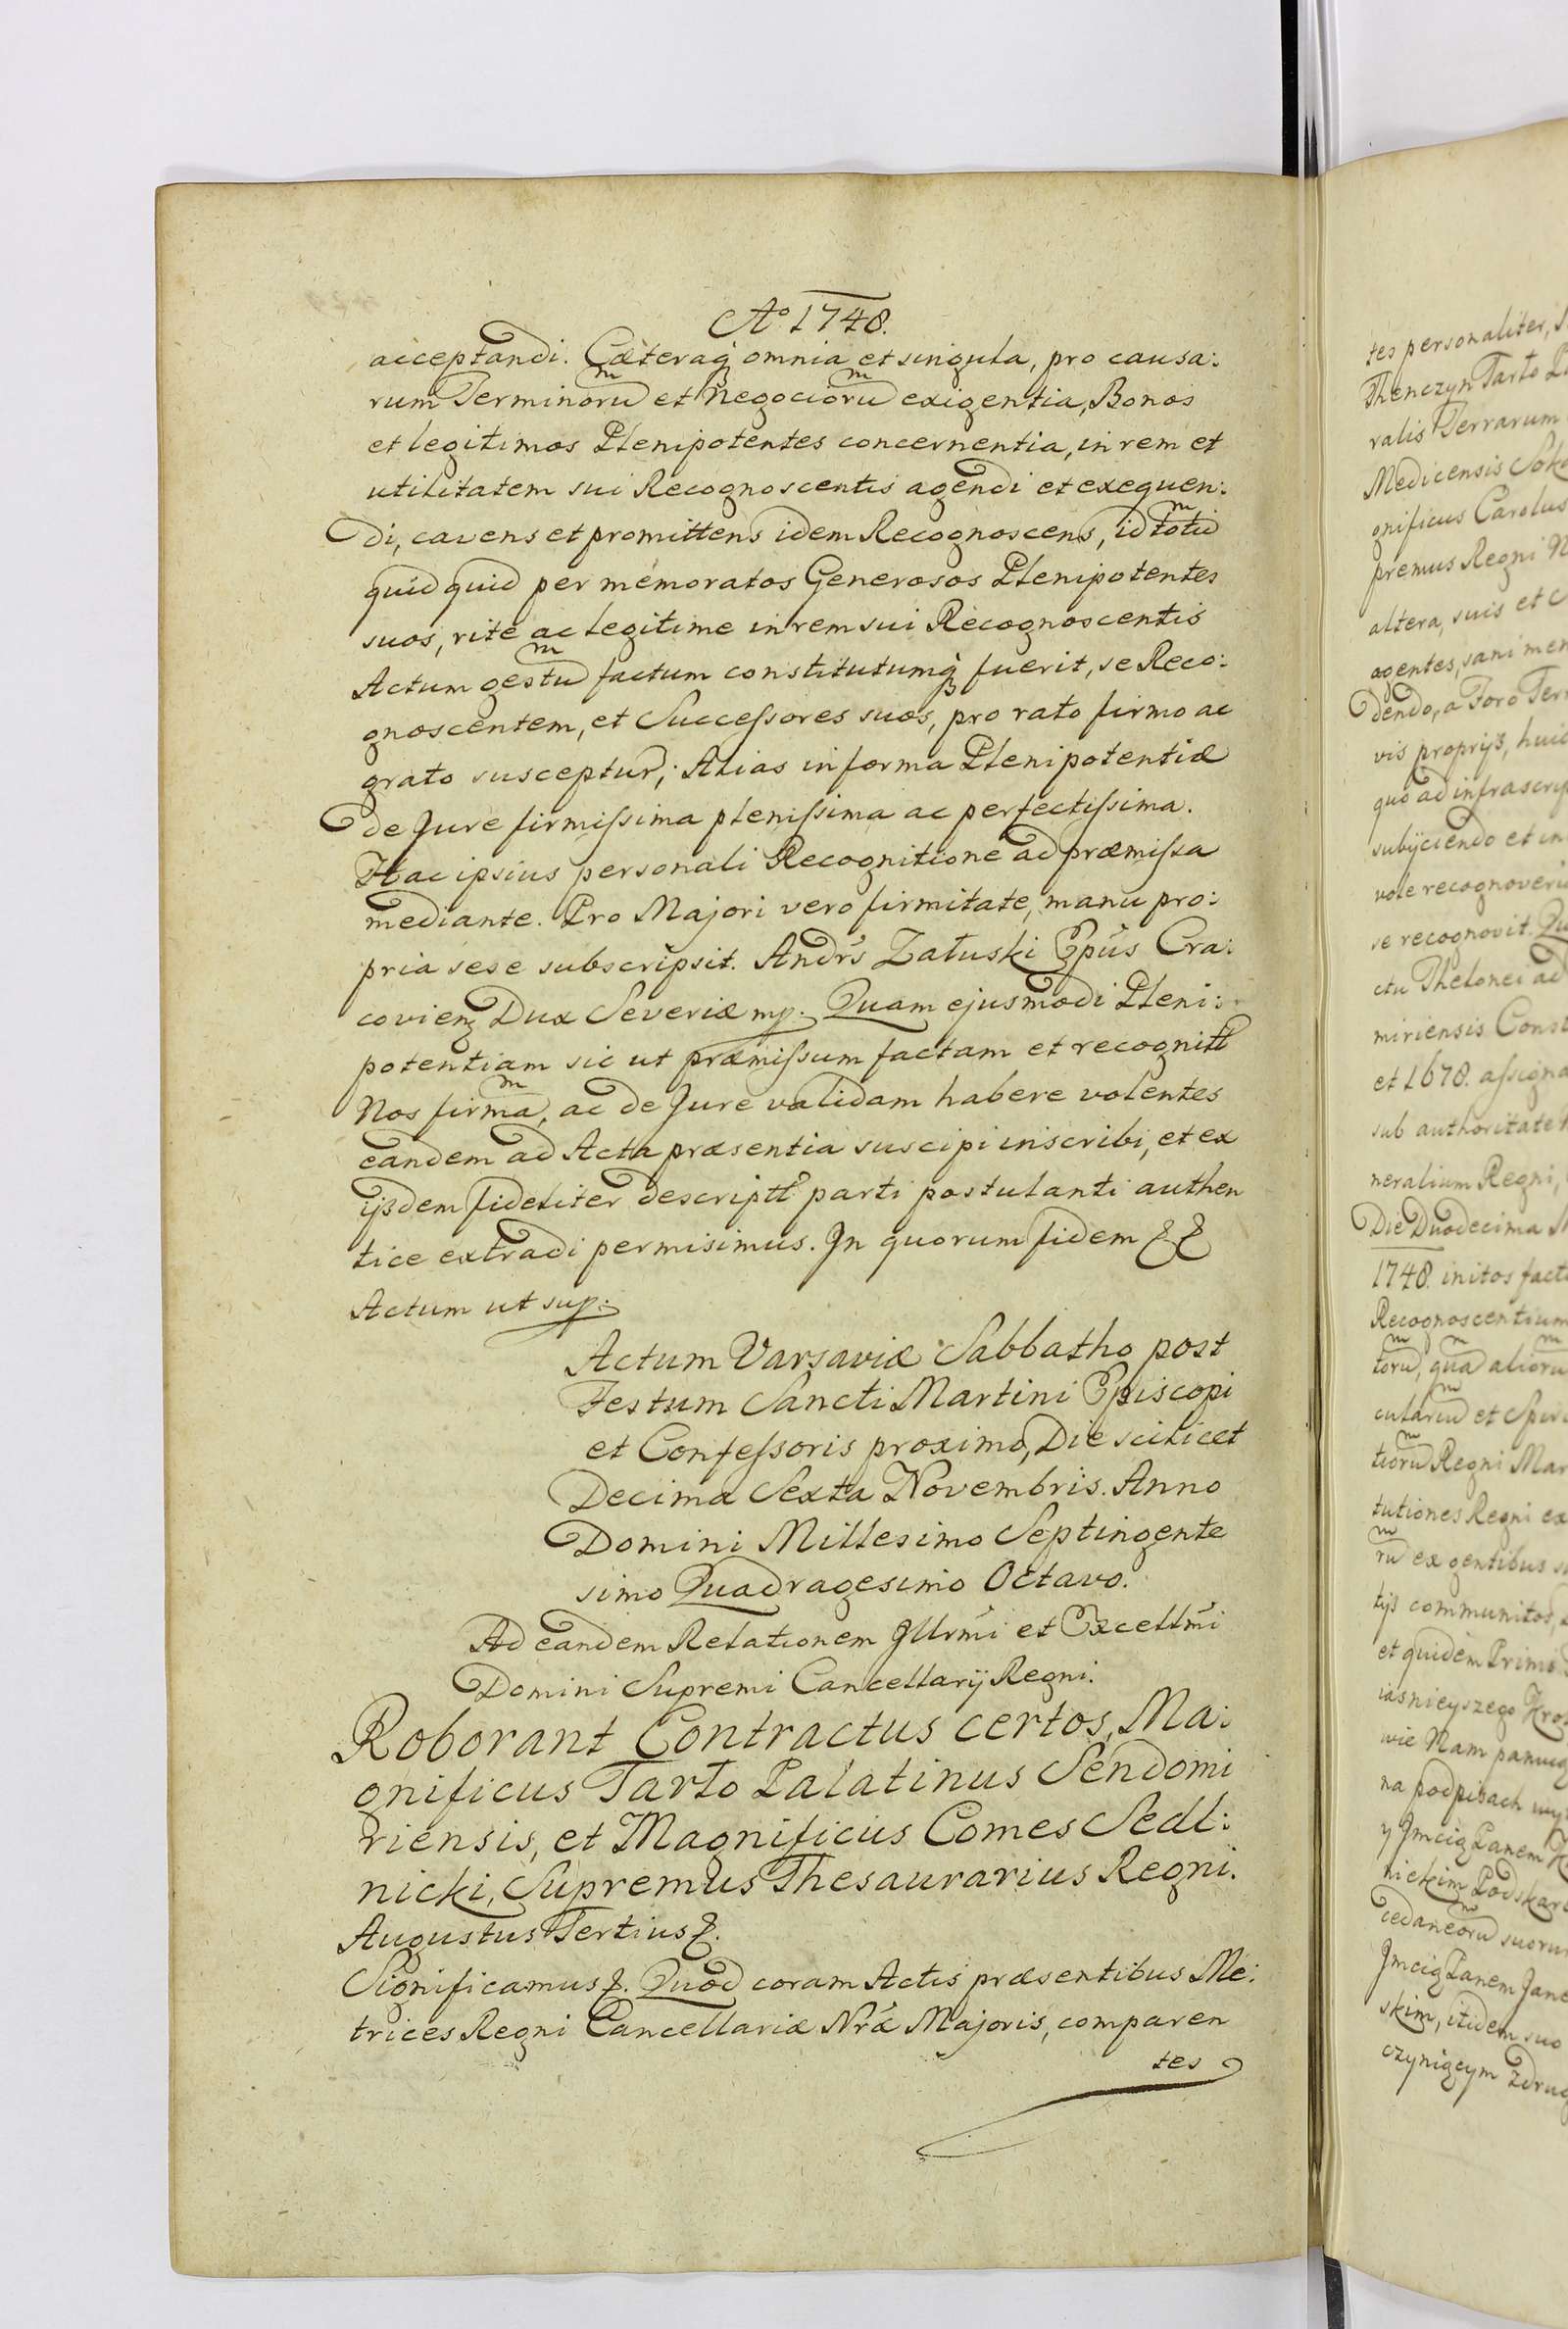 Aº 1748.
acceptandi. Cæteraq̃ omnia et singula, pro causa:
rum Terminoru͠m et Negocioru͠m exigentia, Bonos
et legitimos Plenipotentes concernentia, in rem et
utilitatem sui Recognoscentis agendi et exequen:
di, cavens et promittens idem Recognoscens, id totu͠m
quid quid per memoratos Generosos Plenipotentes
suos, rite ac legitime in rem sui Recognoscentis
Actum gestu͠m factum constitutumq̃ fuerit, se Reco:
gnoscentem, et Successores suos, pro rato firmo ac
grato suscepturᷣ; Alias in forma Plenipotentiæ
de Jure firmissima plenissima ac perfectissima.
Hac ipsius personali Recognitione ad præmissa
mediante. Pro Majori vero firmitate, manu pro:
pria sese subscripsit. Andr̃s Załuski Ep̃us Cra:
covienȝ Dux Severiæ mp. Quam ejusmodi Pleni:
potentiam sic ut præmissum factam et recognitt̃
Nos firma͠m, ac de Jure validam habere volentes
eandem ad Acta præsentia suscipi inscribi, et ex
ijsdem fideliter descriptt̃ parti postulanti authen
tice extradi permisimus. Jn quorum fidem & &
Actum ut sup:
Actum Varsaviæ Sabbatho post
Festum Sancti Martini Episcopi
et Confessoris proximo, Die scilicet
Decima Sexta Novembris. Anno
Domini Millesimo Septingente
simo Quadragesimo Octavo.
Ad eandem Relationem Jllrm̃i et Excellm̃i
Domini Supremi Cancellarij Regni.
Roborant Contractus certos, Ma:
gnificus Tarło Palatinus Sendomi
riensis, et Magnificus Comes Sedl:
nicki, Supremus Thesaurarius Regni.
Augustus Tertius &.
Significamus &. Quod coram Actis præsentibus Me:
trices Regni Cancellariæ Nr̃æ Majoris, comparen
tes
tes personaliter,
Thenczyn Tarło
ralis Terrarum
Medicensis
gnificus Carolus
premus Regni
altera, suis et
agentes, sani
dendo, a Foro
vis proprijs,
quo ad
subijciendo et
vole
se recognovit.
ctu Thelonei ad
miriensis
et 1678.
sub authoritate
neralium Regni,
Die Duodecima
1748. initos
Recognoscentium
toru͠m, qua͠m alioru͠m
culariu͠m et
tioru͠m Regni
tutiones Regni ex
ru͠m ex gentibus
tijs communitos,
et quidem Primo
iasnieyszego
wie Nam
na podpisach
y Jmcią Panem
nickim
cedaneoru͠m
Jmcią Panem
skim, itidem suo
czyniącym